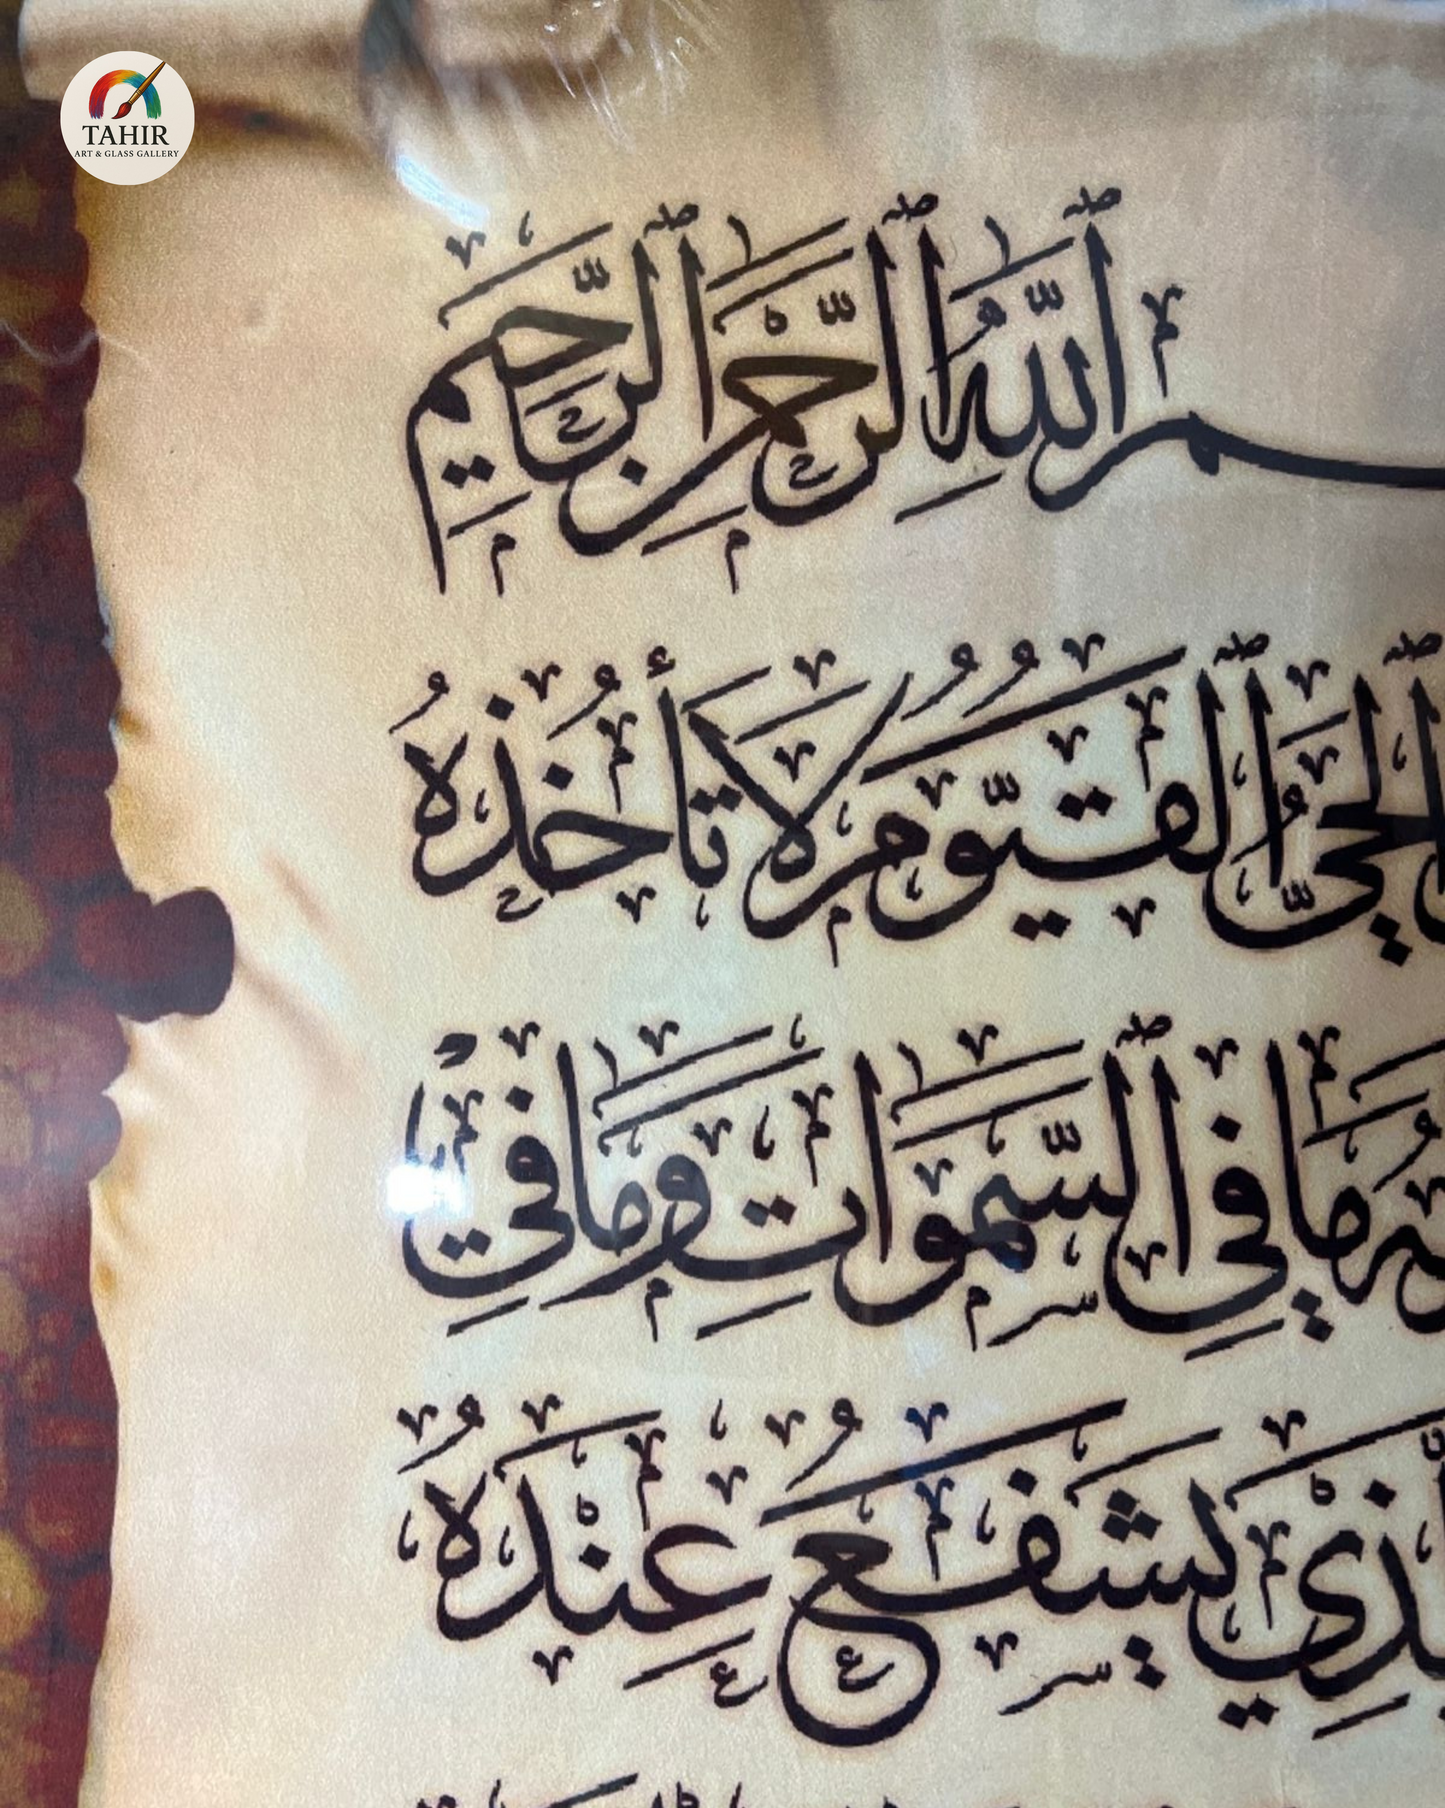 TAHIR
ART & GLASS GALLERY
ـسمِ ٱللَّهِ ٱلرَّحْمَٰنِ ٱلرَّحِيمِ
ٱلْحَيُّ ٱلْقَيُّومُ لَا تَأْخُذُهُ
مَا فِي ٱلسَّمَٰوَاتِ وَمَا فِي
يَشْفَعُ عِنْدَهُ